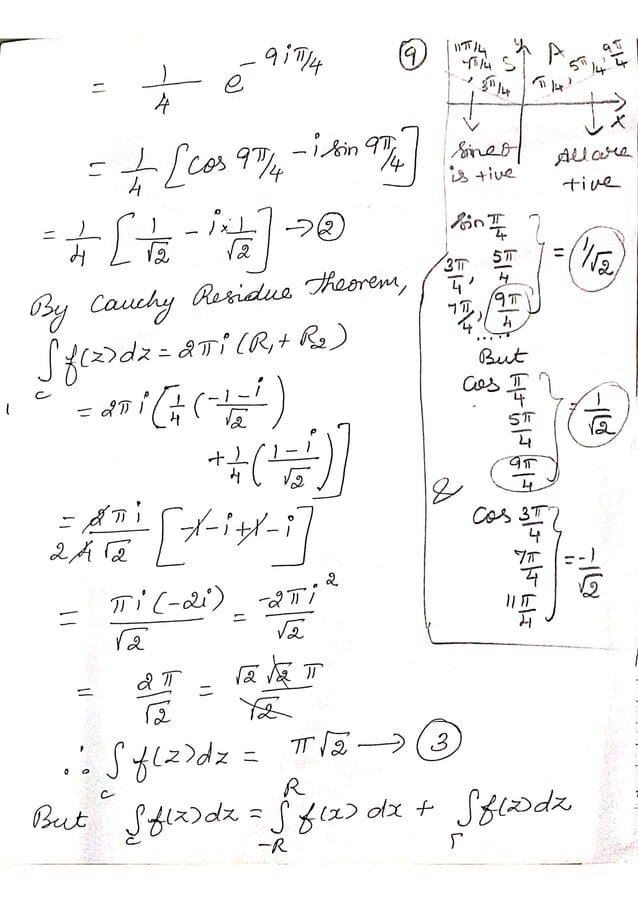 = 1/4 e^{-9iπ/4}
= 1/4 [cos 9π/4 - i sin 9π/4]
= 1/4 [1/√2 - i×1/√2] → ②
By Cauchy Residue Theorem,
∫_c f(z)dz = 2πi (R₁ + R₂)
= 2πi [1/4 (-1-i/√2)
+ 1/4 (1-i/√2)]
= 2πi/2 4√2 [-1-i+1-i]
= πi(-2i)/√2 = -2πi²/√2
= 2π/√2 = √2 √2 π/√2
∴ ∫_c f(z)dz = π√2 → ③
But ∫_c f(z)dz = ∫_{-R}^{R} f(x) dx + ∫_Γ f(z)dz
⑨
11π/4 y A 9π/4
7π/4 S 5π/4,
, 3π/4 π/4,
x
Sineθ All are
is +ive +ive
sin π/4
3π/4, 5π/4
7π/4, 9π/4 } = 1/√2
.....
But
cos π/4
5π/4
9π/4 } = 1/√2
&
cos 3π/4
7π/4
11π/4 } = -1/√2